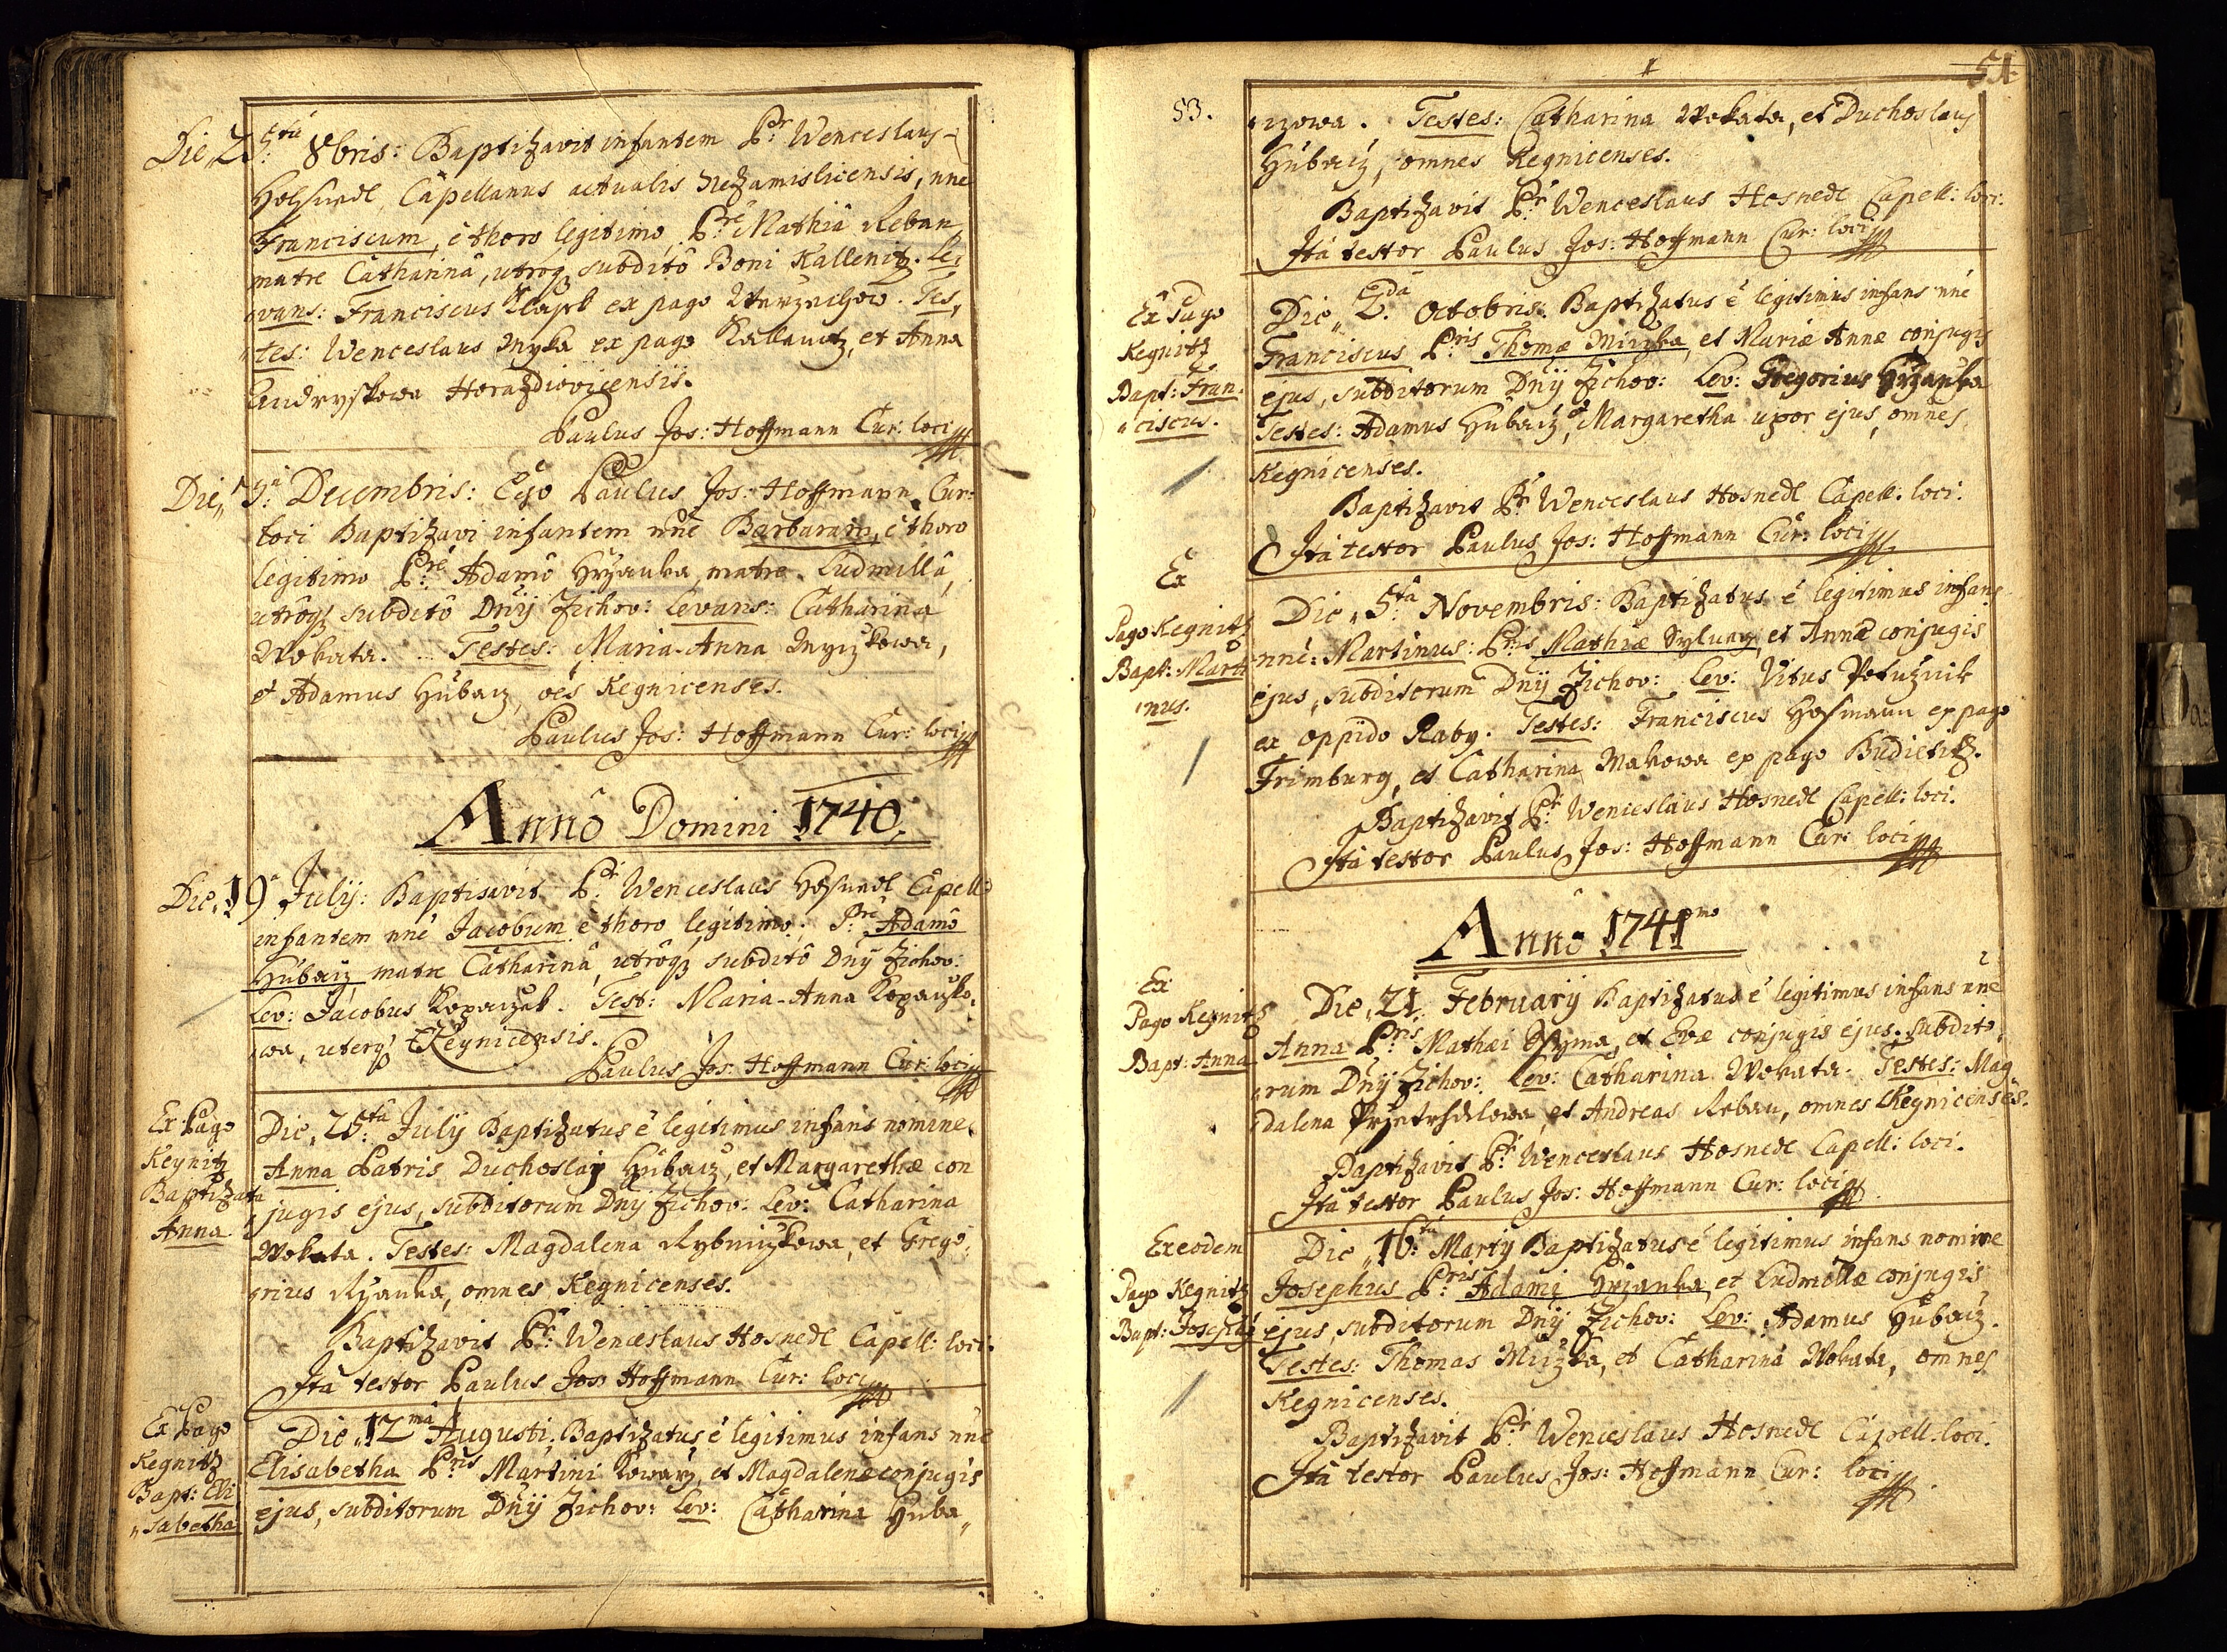 Die 25ta 8bris: Baptizavit infantem Pr: Wenceslaus
Capellanus actualis Nezamislicensis, nne
Franciscum, è thoro legitimo, Pre Mathia Reban
matre Catharinâ, utroq subditô Boni Kallenitz. Le,
vans: Franciscus ex pago Tes,
tes: Wenceslaus ex pago et Anna
Horazdiovicensis.
Paulus Jos: Hoffmann Cur: loci
Die 5ta Decembris: Ego Paulus Jos: Hoffmann Cur:
loci Baptizavi infantem nne Barbaram, è thoro
legitimo Pre: Adamô Hrzanka, matre Ludmillâ,
utrôq subditô Dnÿ Zichov: Levans: Catharina
Wokata. Testes: Maria-Anna
et Adamus Hubacz, oes Kegnicenses.
Paulus Jos: Hoffmann Cur: loci
Annô Domini 1740.
Die 19 Julÿ: Baptisavit Pr: Wenceslaus Capell:
infantem nne Jacobum è thoro legitimo; Pre: Adamô
Hubacz matre Catharinâ, utrôq subditô Dnÿ Zichov:
Lev: Jacobus Test: Maria-Anna
wa, uterq Kegnicensis.
Paulus Jos: Hoffmann Cur: loci
Ex Pago
Kegnitz
Baptizata
Anna
Die 25ta Julÿ Baptizatus è legitimus infans nomine
Anna Patris Duchoslai Hubacz, et Margarethæ con
jugis ejus, subditorum Dnÿ Zichov: Lev: Catharina
Wokata. Testes: Magdalena et Grego,
rius omnes Kegnicenses.
Baptizavit Pr: Wenceslaus Hosnedl Capell: loci.
Ità testor Paulus Jos: Hoffmann Cur: loci
Ex Pago
Kegnitz
Bapt: Eli
sabetha
Die 12ma Augusti: Baptizatus è legitimus infans nne
Elisabetha Pris Martini Kowarz, et Magdalenæ conjugis
ejus, subditorum Dnÿ Zichov: Lev: Catharina Huba,,
51
53.
czowa. Testes: Catharina Wokata, et Duchoslaus
Hubacz, omnes Kegnicenses.
Baptizavit Pr: Wenceslaus Hosnedl Capell: loci.
Ità testor Paulus Jos: Hoffmann Cur: loci
Ex Pago
Kegnitz
Bapt: Fran,
ciscus.
Die 2da Octobris: Baptizatus è legitimus infans nne
Franciscus, Pris Thomæ et Mariæ Annæ conjugis
ejus, subditorum Dnÿ Zichov: Lev: Gregorius Hrzanka
Testes: Adamus Hubacz, et Margaretha uxor ejus, omnes
Kegnicenses.
Baptizavit Pr Wenceslaus Hosnedl Capell: loci.
Ità testor Paulus Jos: Hoffmann Cur: loci
Ex
Pago Kegnitz
Bapt: Marti
nus.
Die 5ta Novembris: Baptizatus è legitimus infans
nne: Martinus: Pris Mathiæ et Annæ conjugis
ejus, subditorum Dnÿ Zichov: Lev: Vitus
ex oppido Raby. Testes: Franciscus Hofmann ex pago
Frimburg, et Catharina Makowa ex pago Budietitz.
Baptizavit Pr: Wenceslaus Hosnedl Capell: loci.
Ità testor Paulus Jos: Hoffmann Cur: loci
Annô 1741mo
Ex
Pago Kegnitz
Bapt: Anna
Die 21. Februarÿ Baptizatus è legitimus infans nne
Anna Pris Mathæi et Evæ conjugis ejus, subdito,
rum Dnÿ Zichov: Lev: Catharina Wokata. Testes: Mag,
dalena et Andreas Reban, omnes Kegnicenses.
Baptizavit Pr: Wenceslaus Hosnedl Capell: loci.
Ità testor Paulus Jos: Hoffmann Cur: loci
Ex eodem
Pago Kegnitz
Bapt: Josephus
Die 16ta Martÿ Baptizatus è legitimus infans nomine
Josephus Pris: Adami Hrzanka et Ludmillæ conjugis
ejus, subditorum Dnÿ Zichov: Lev: Adamus Hubacz.
Testes: Thomas et Catharina Wokata, omnes
Kegnicenses.
Baptizavit Pr: Wenceslaus Hosnedl Capell: loci.
Ità testor Paulus Jos: Hoffmann Cur: loci